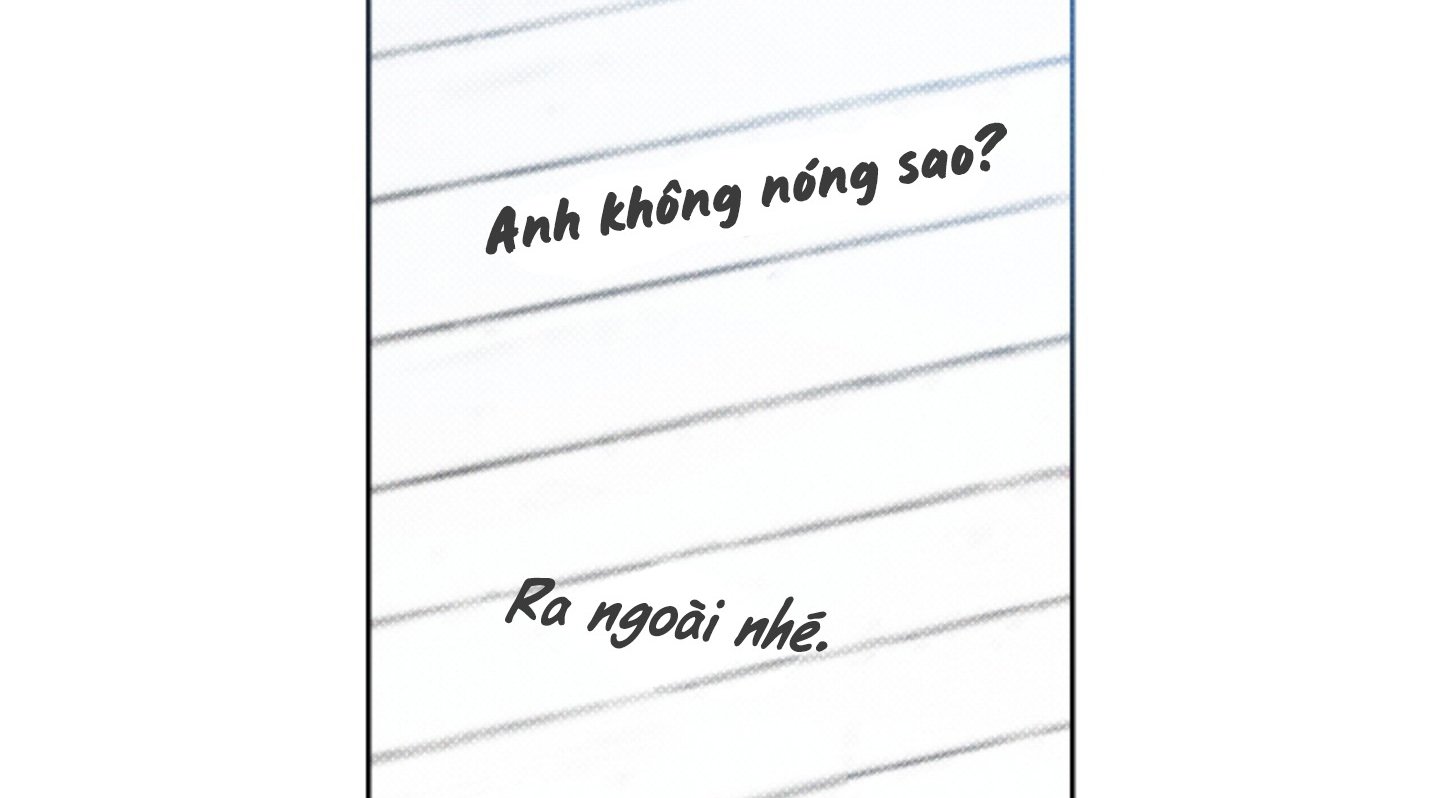 Anh không nóng sao?
Ra ngoài nhé.